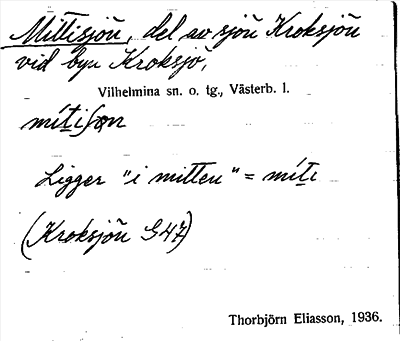 Mittisjön, del av sjön Kroksjön
vid byn Kroksjö,
Vilhelmina sn. o. tg., Västerb. l.
Ligger "i mitten" = míti
(Kroksjön G 47)
Thorbjörn Eliasson, 1936.